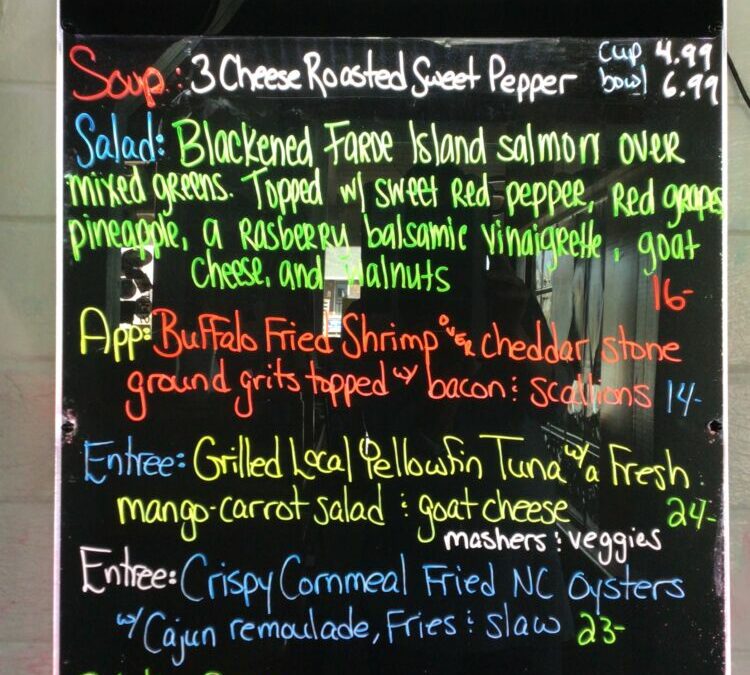 Soup: 3 Cheese Roasted Sweet Pepper cup 4.99
bowl 6.99
Salad: Blackened Faroe Island salmon over
mixed greens. Topped w/ sweet Red pepper, Red grapes
pineapple, a Rasberry balsamic vinaigrette, goat
cheese, and walnuts
16-
App: Buffalo Fried Shrimp over cheddar stone
ground grits topped w/ bacon & scallions 14-
Entree: Grilled Local Yellowfin Tuna w/ a Fresh
mango-carrot salad & goat cheese 24-
mashers & veggies
Entree: Crispy Cornmeal Fried NC oysters
w/ Cajun remoulade, Fries & slaw 23-